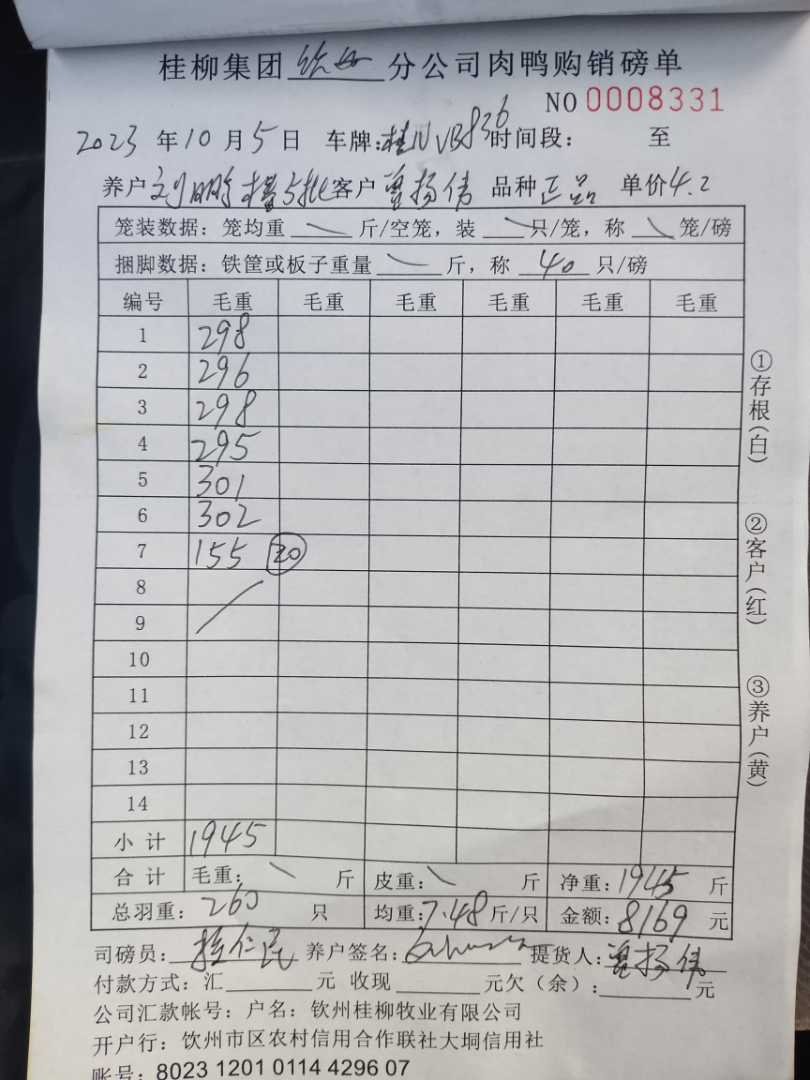 桂柳集团 钦州 分公司肉鸭购销磅单
NO 0008331
2023 年 10 月 5 日 车牌:桂N VB836 时间段: 至
养户 刘鹏 批 客户 曾扬伟 品种 正品 单价 4.2
笼装数据: 笼均重 斤/空笼, 装 只/笼, 称 笼/磅
捆脚数据: 铁筐或板子重量 斤, 称 40 只/磅
编号 毛重 毛重 毛重 毛重 毛重 毛重
1 298
2 296
3 298
4 295
5 301
6 302
7 155 20
8
9
10
11
12
13
14
小计 1945
合计 毛重: 斤 皮重: 斤 净重: 1945 斤
总羽重: 260 只 均重: 7.48 斤/只 金额: 8169 元
司磅员: 养户签名: 提货人: 曾扬伟
付款方式: 汇 元 收现 元欠(余): 元
公司汇款帐号: 户名: 钦州桂柳牧业有限公司
开户行: 钦州市区农村信用合作联社大垌信用社
账号: 8023 1201 0114 4296 07
①存根(白)
②客户(红)
③养户(黄)